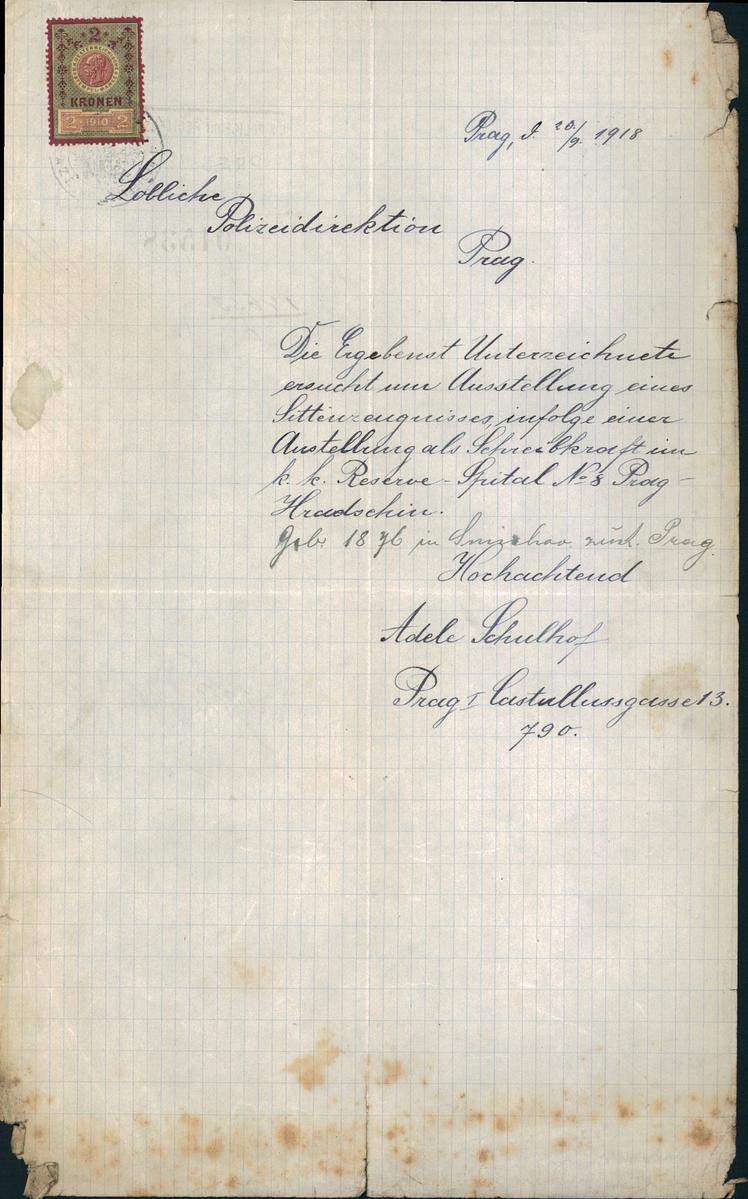 2
KRONEN
2 1910 2
Prag, d. 20/9. 1918
Löbliche
Polizeidirektion
Prag.
Die Ergebenst Unterzeichnete
ersucht um Ausstellung eines
Sittenzeugnisses, infolge einer
Anstellung als Schreibkraft im
k. k. Reserve-Spital No 8 Prag-
Hradschin.
Geb. 1876 in zust. Prag.
Hochachtend
Adele Schulhof
Prag I Castullussgasse 13.
790.